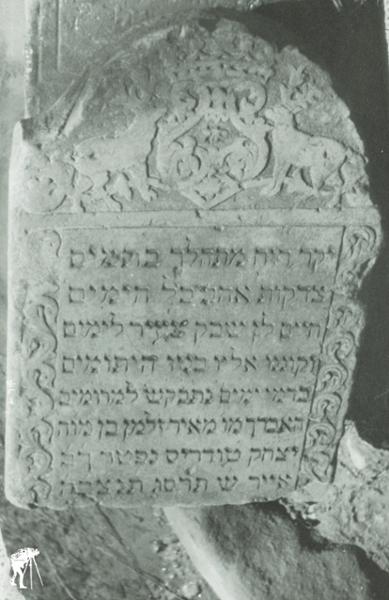 יקר רוח מתהלך בתמים
צדקות אהב כל הימים
חיים לן שבק צעיר לימים
אליו כמו היתומים
בדמי ימים נתבקש למרומים
האברך מו מאיר זלמן בן מוה
יצחק טודריס נפטר
אייר ש תרסג תנצבה